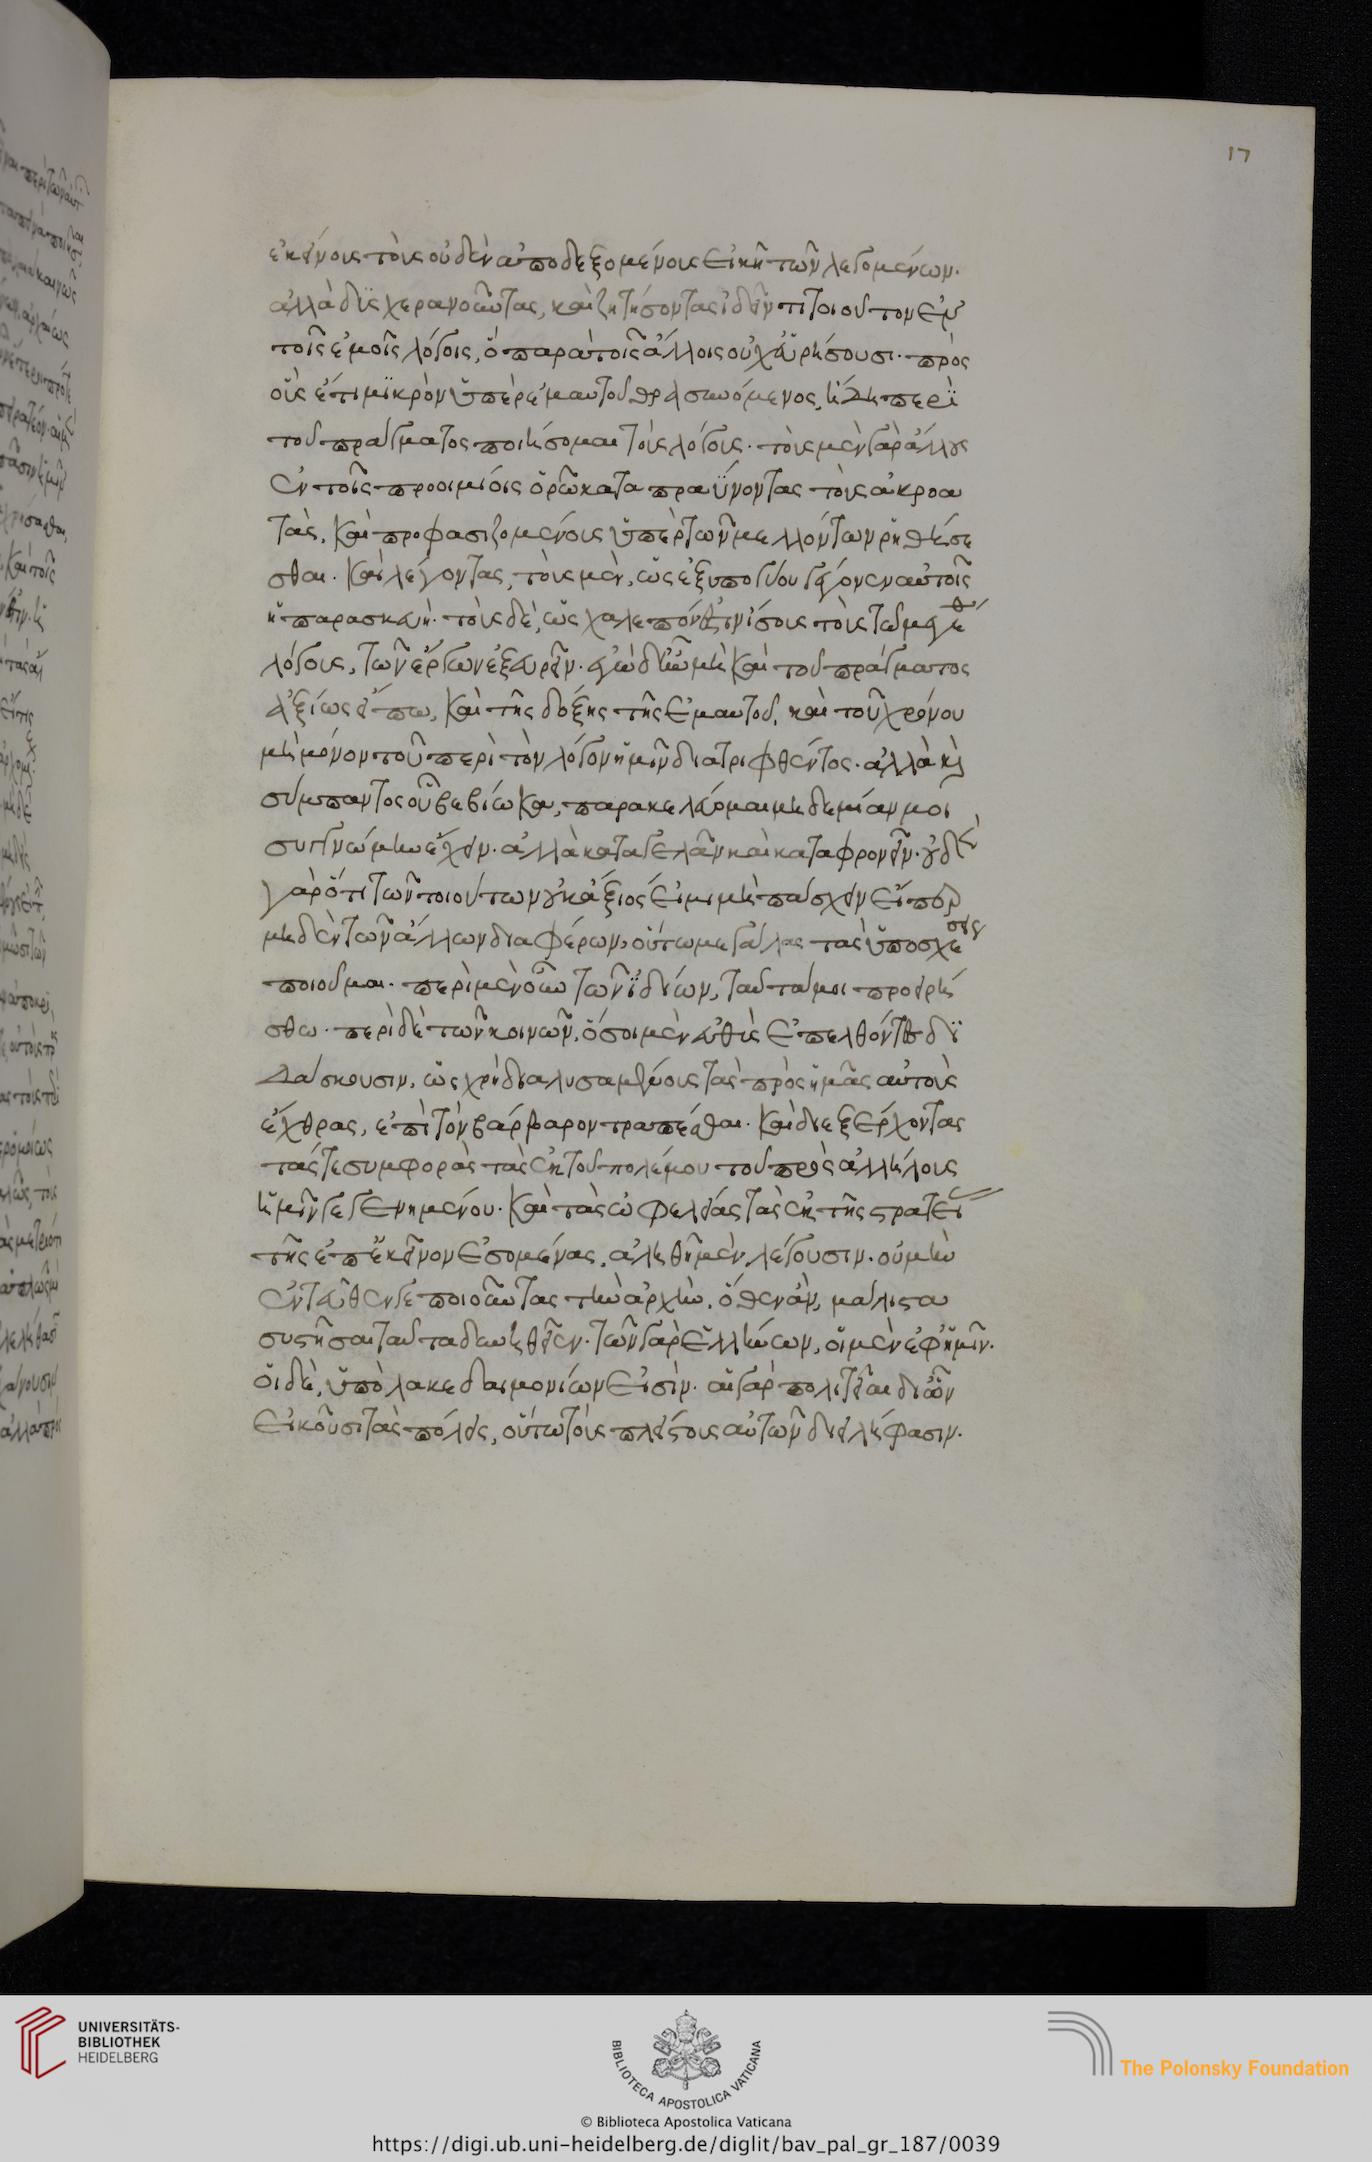 17
ἐκείνοις τοῖς οὐδὲν ἀποδεξομένοις εἰκῆ τῶν λεγομένων.
ἀλλὰ δυσχερανοῦντας, καὶ ζητήσοντας ἰδεῖν τι τοιοῦτον ἐν
τοῖς ἐμοῖς λόγοις, ὃ παρὰ τοῖς ἄλλοις οὐχ εὑρήσουσι. πρὸς
οὓς ἔτι μικρὸν ὑπὲρ ἐμαυτοῦ θρασυνόμενος, ἤδη περὶ
τοῦ πράγματος ποιήσομαι τοὺς λόγους. τοὺς μὲν γὰρ ἄλλους
ἐν τοῖς προοιμίοις ὁρῶ καταπραΰνοντας τοὺς ἀκροα
τὰς, καὶ προφασιζομένους ὑπὲρ τῶν μελλόντων ῥηθήσε
σθαι. καὶ λέγοντας, τοὺς μὲν, ὡς ἐξ υπογύου γέγονεν αὐτοῖς
ἡ παρασκευή. τοὺς δὲ, ὡς χαλεπόν ἐστιν ἴσους τοὺς τῷ μεγέθ
λόγους, τῶν ἔργων ἐξευρεῖν. ἐγὼ δ' ἢν μὴ καὶ τοῦ πράγματος
ἀξίως εἴπω, καὶ τῆς δόξης τῆς ἐμαυτοῦ, καὶ τοῦ χρόνου
μὴ μόνον τοῦ περὶ τὸν λόγον ἡμῖν διατριφθέντος. ἀλλὰ καὶ
σύμπαντος οὗ βεβίωκα, παρακελεύομαι μηδεμίαν μοι
συγγνώμην ἔχειν. ἀλλὰ καταγελᾶν καὶ καταφρονεῖν. οὐδὲν
γὰρ ὅτι τῶν τοιούτων οὐκ ἄξιός εἰμι μὴ πάσχειν εἴπερ
μηδὲν τῶν ἄλλων διαφέρων, οὕτω μεγάλας τὰς ὑποσχέσεις
ποιοῦμαι. περὶ μὲν οὖν τῶν ἰδίων, ταῦτά μοι προειρή
σθω. περὶ δὲ τῶν κοινῶν, ὅσοι μὲν εὐθὺς ἐπελθόντες δι
δάσκουσιν, ὡς χρὴ διαλυσαμένους τὰς πρὸς ἡμᾶς αὐτοὺς
ἔχθρας, ἐπὶ τὸν βάρβαρον τραπέσθαι. καὶ διεξέρχονται
τάς τε συμφορὰς τὰς ἐκ τοῦ πολέμου τοῦ πρὸς ἀλλήλους
ἡμῖν γεγενημένου. καὶ τὰς ὠφελείας τὰς ἐκ τῆς στρατεί
τῆς ἐπ' ἐκεῖνον ἐσομένας, ἀληθῆ μὲν λέγουσιν. οὐ μὴν
ἐντεῦθέν γε ποιοῦνται τὴν ἀρχὴν, ὅθεν ἂν, μάλιστα
συστῆσαι ταῦτα δυνηθεῖεν. τῶν γὰρ Ἑλλήνων, οἱ μὲν ἐφ' ἡμῖν.
οἱ δὲ, ὑπὸ λακεδαιμονίων εἰσὶν. αἱ γὰρ πολιτεῖαι δι' ὧν
εἰκοῦσι τὰς πόλεις, οὕτω τοὺς πλείστους αὐτῶν διειλήφασιν.
UNIVERSITÄTS-
BIBLIOTHEK
HEIDELBERG
BIBLIOTECA APOSTOLICA VATICANA
The Polonsky Foundation
© Biblioteca Apostolica Vaticana
https://digi.ub.uni-heidelberg.de/diglit/bav_pal_gr_187/0039